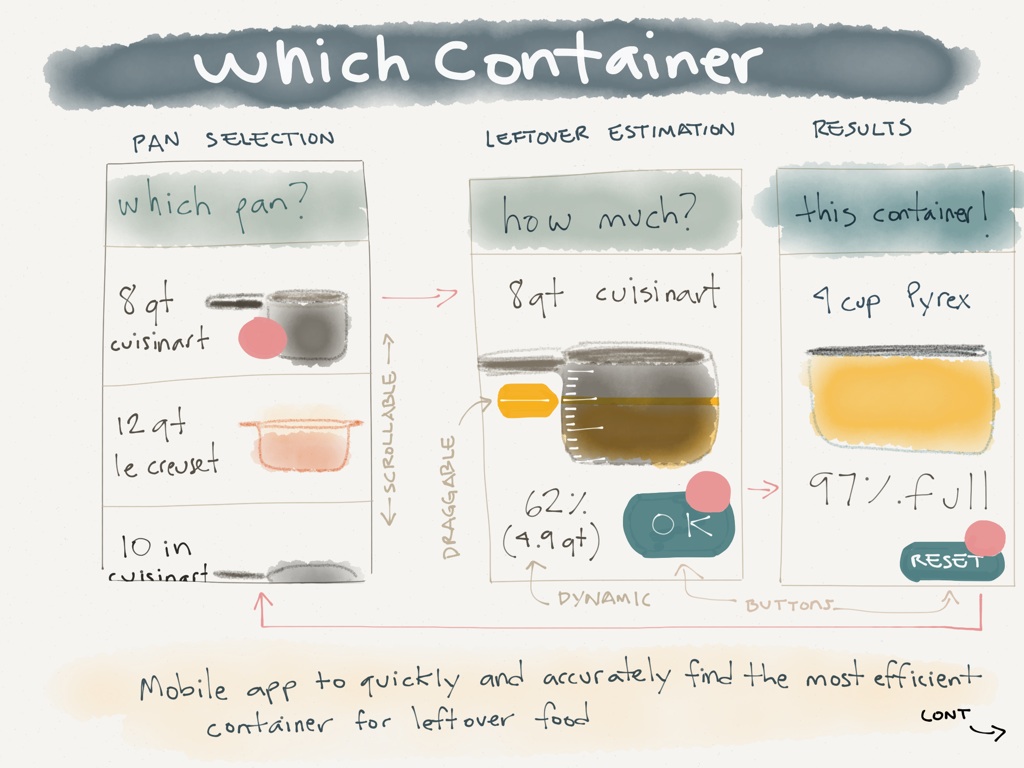 which container
PAN SELECTION
LEFTOVER ESTIMATION
RESULTS
which pan?
8 qt
cuisinart
12 qt
le creuset
10 in
cuisinart
SCROLLABLE
how much?
8qt cuisinart
DRAGGABLE
62%
(4.9 qt)
OK
DYNAMIC
BUTTONS
this container!
4 cup Pyrex
97% full
RESET
Mobile app to quickly and accurately find the most efficient
container for leftover food
CONT